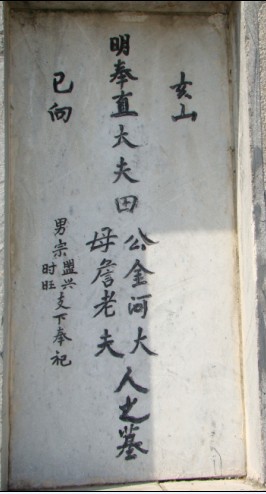 亥山
明奉直大夫田
公金河大
母詹老夫
人之墓
巳向
男宗
盟兴
时旺
支下奉祀